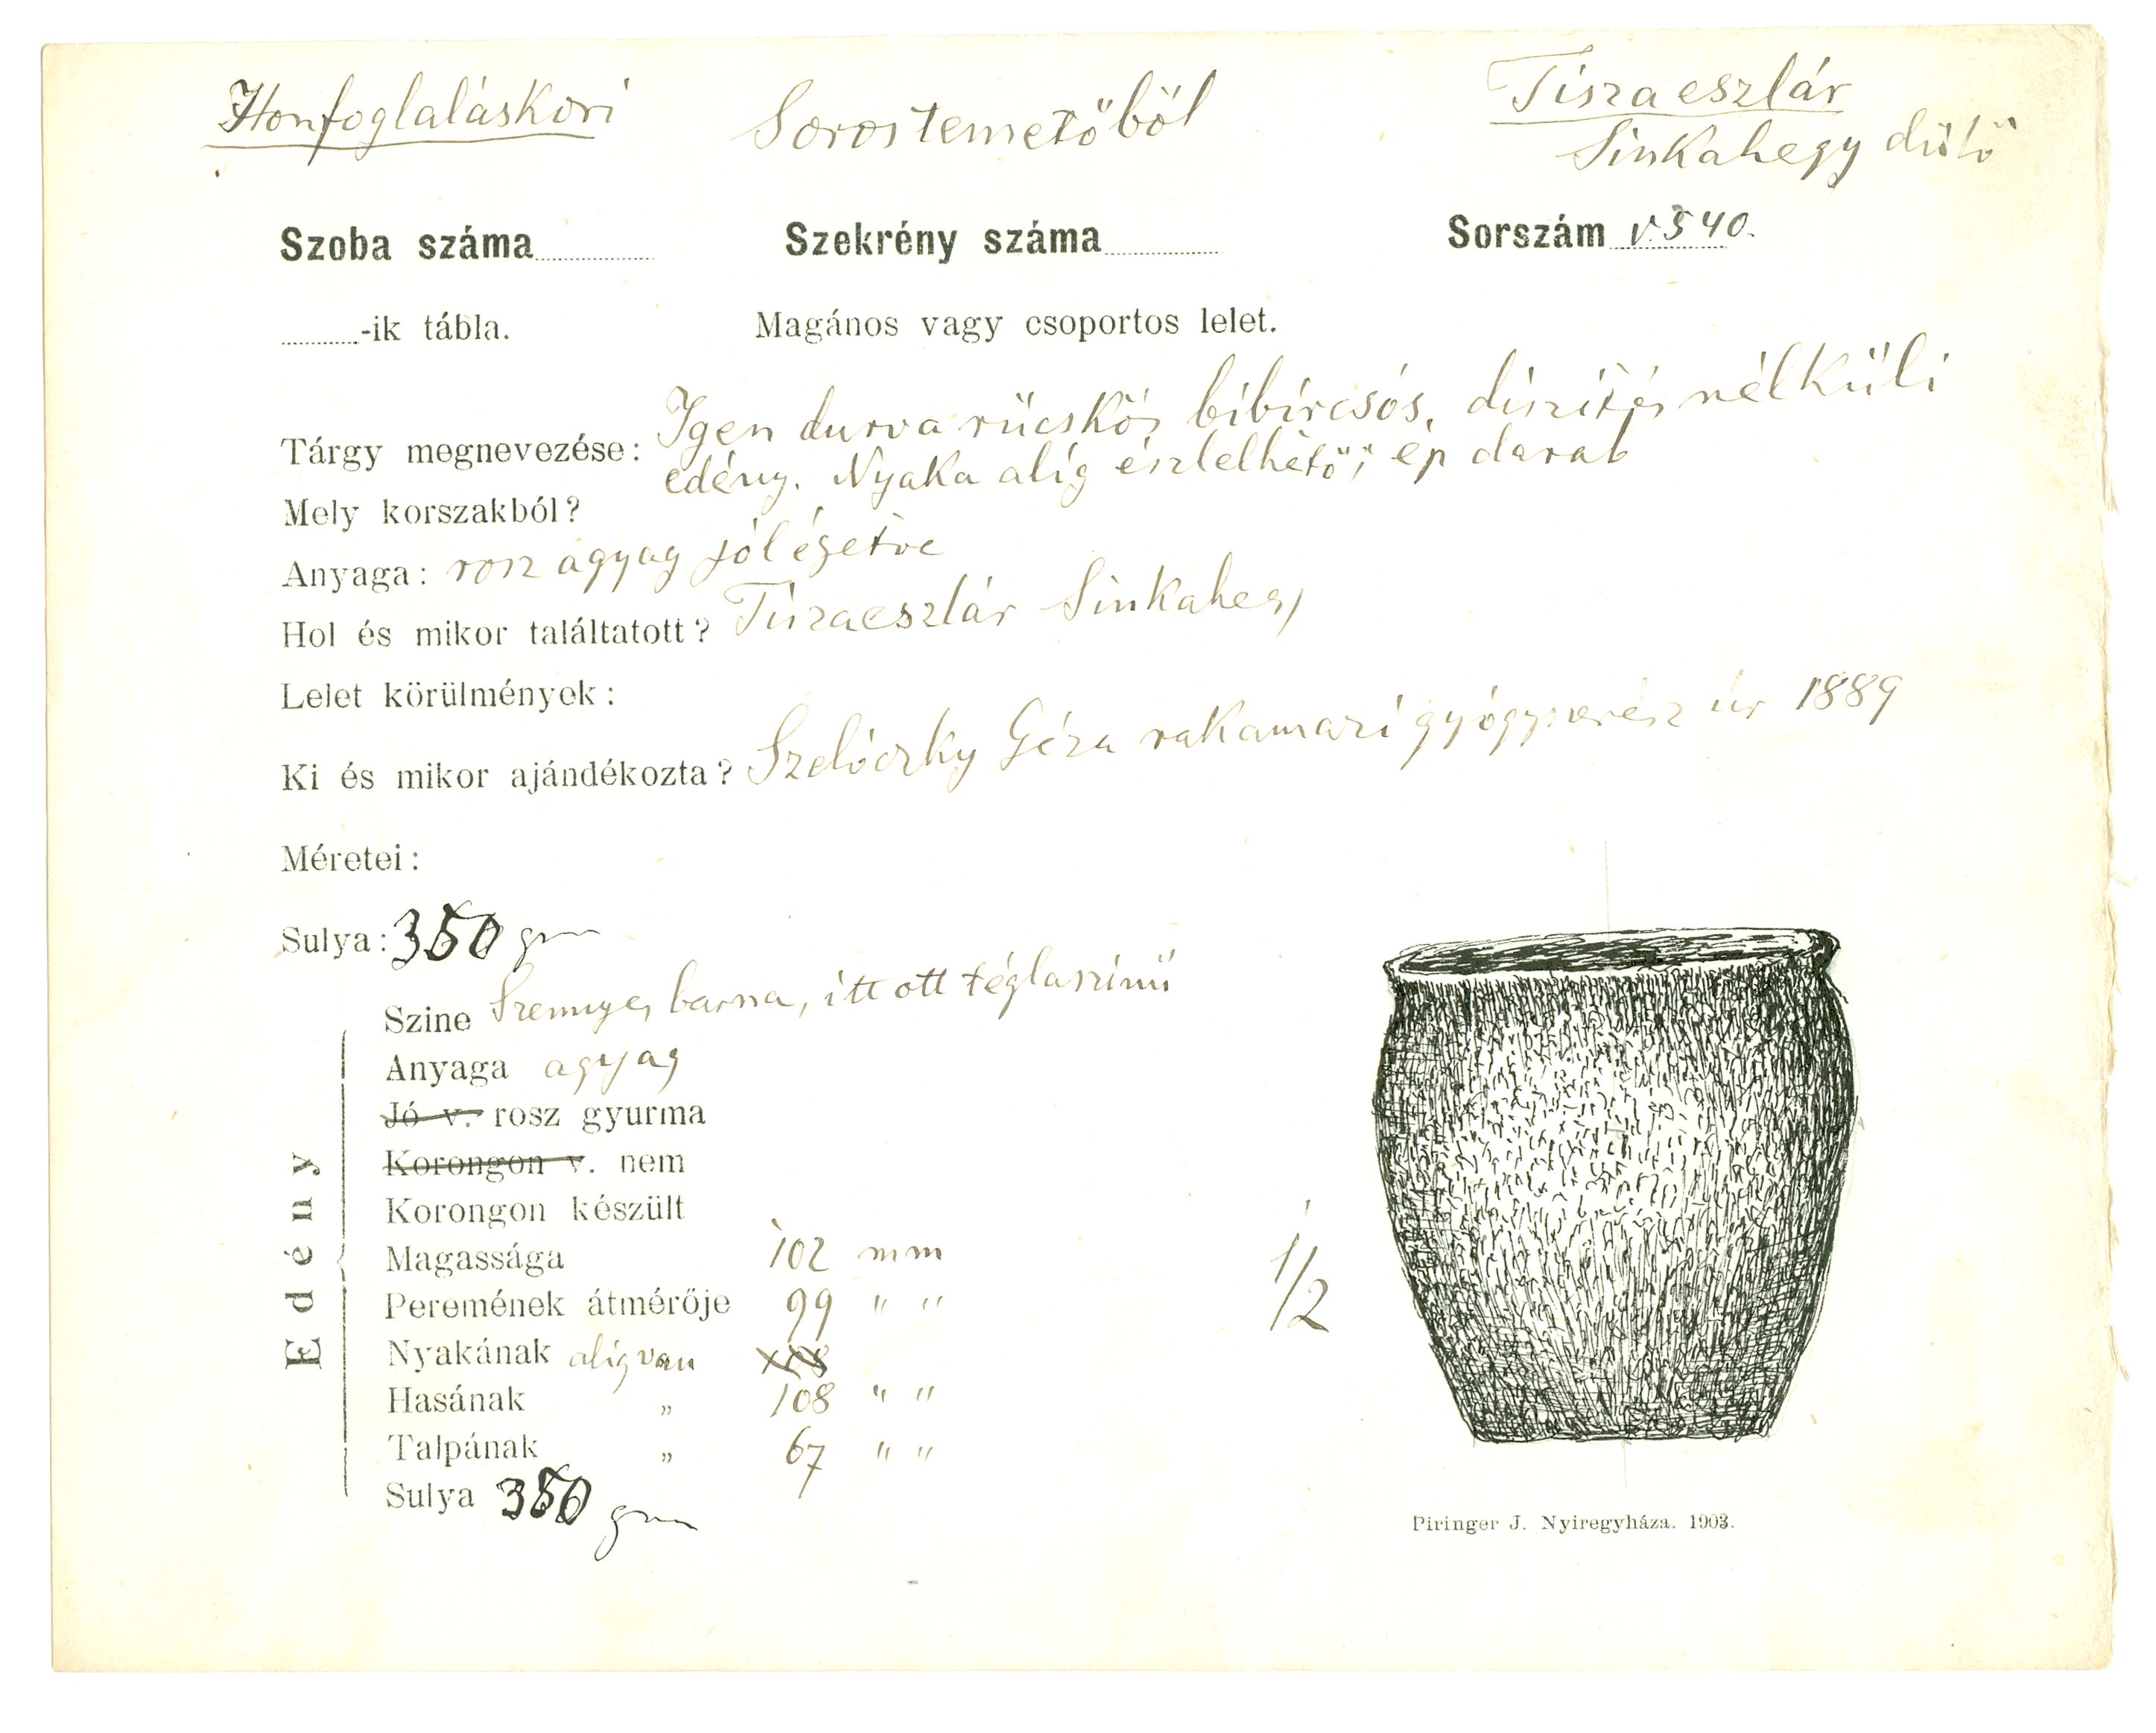 Honfoglaláskori Sorostemetőből Tiszaeszlár
Sinkahegy dűlő
Szoba száma Szekrény száma Sorszám v 540.
-ik tábla. Magános vagy csoportos lelet.
Tárgy megnevezése: Igen durva rücskös bibircsós, diszítés nélküli
edény. Nyaka alig észlelhető; ép darab
Mely korszakból?
Anyaga: rosz agyag jól égetve
Hol és mikor találtatott? Tiszaeszlár Sinkahegy
Lelet körülmények:
Ki és mikor ajándékozta? Szelóczky Géza rakamazi gyógyszerész úr 1889
Méretei:
Sulya: 350 grm
Edény
Szine Szennyes barna, itt ott téglaszinű
Anyaga agyag
Jó v. rosz gyurma
Korongon v. nem
Korongon készült
Magassága 102 mm
Peremének átmérője 99 " "
Nyakának alig van
Hasának „ 108 " "
Talpának „ 67 " "
Sulya 350 grm
1/2
Piringer J. Nyiregyháza. 1903.